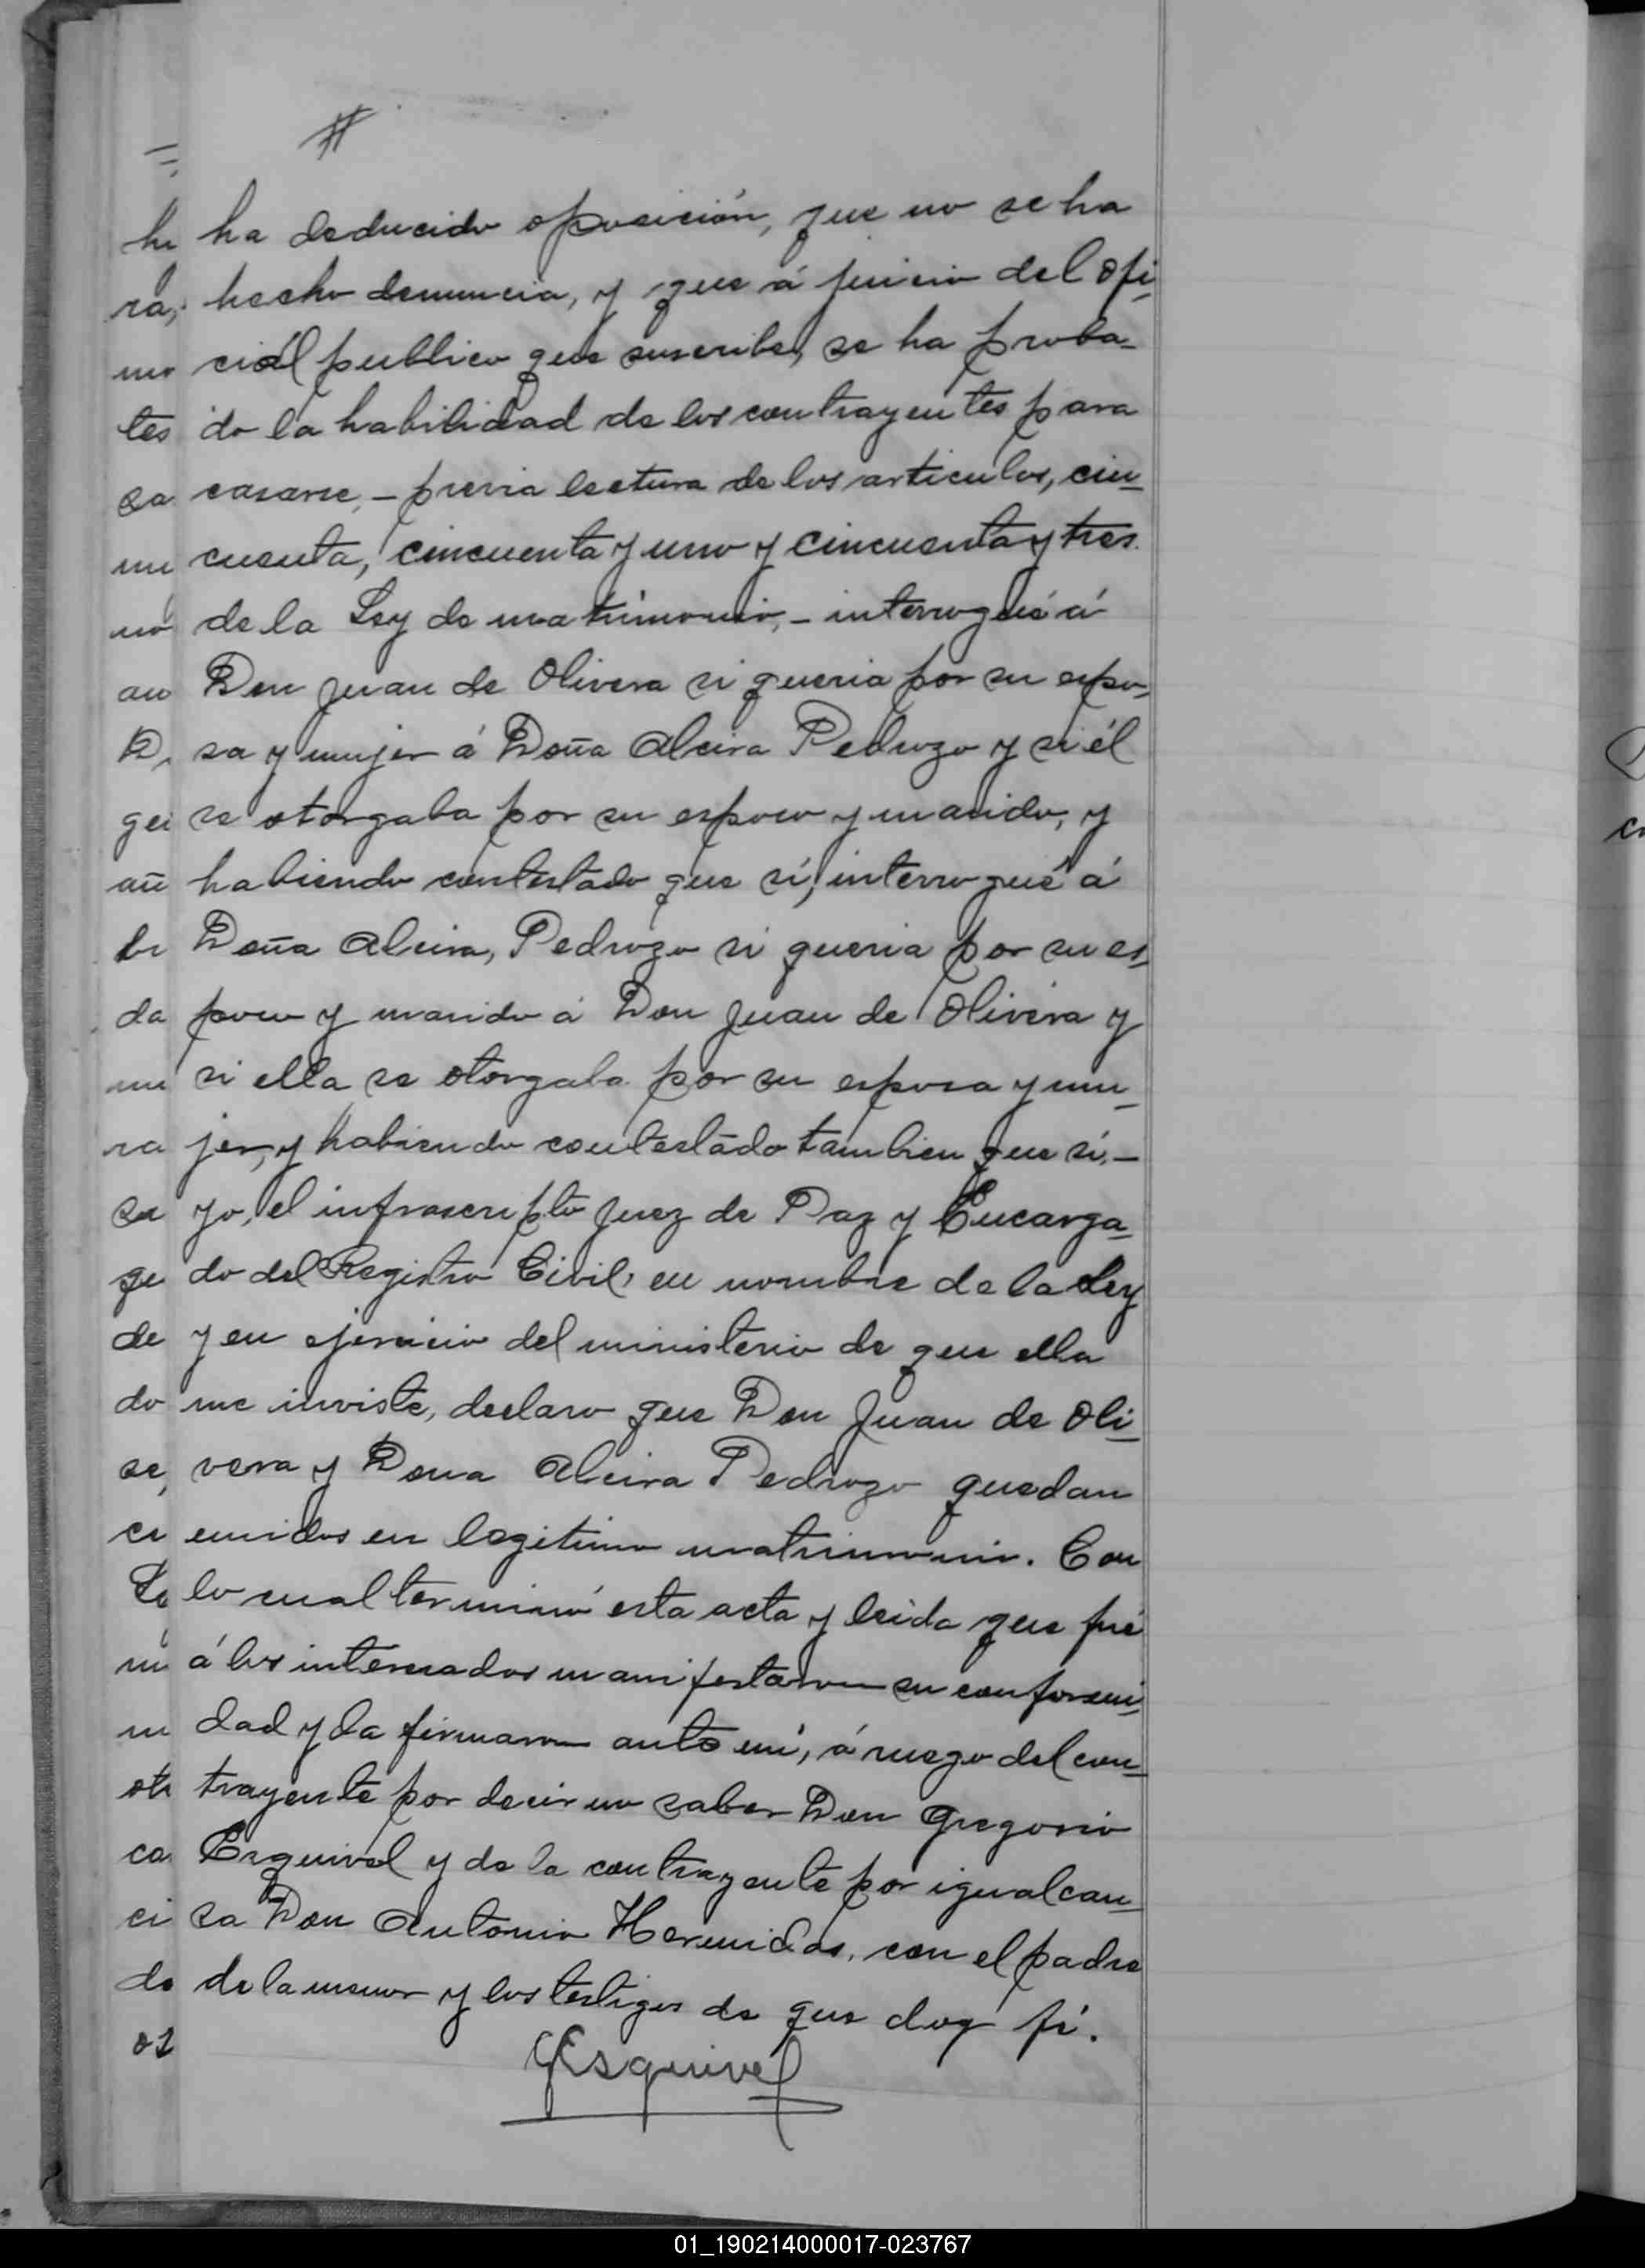 #
ha deducido oposición, que no se ha
hecho denuncia, y que á juicio del ofi-
cial publico que suscribe, se ha proba-
do la habilidad de los contrayentes para
casarse, – previa lectura de los articulos, cin-
cuenta, cincuenta y uno y cincuenta y tres
de la Ley de matrimonio, – interrogué á
Don Juan de Olivera si queria por su espo-
sa y mujer á Doña Alcira Pedrozo y si él
se otorgaba por su esposo y marido, y
habiendo contestado que sí, interrogué á
Doña Alcira, Pedrozo si queria por su es-
poso y marido á Don Juan de Olivera y
si ella se otorgaba por su esposa y mu-
jer, y habiendo contestado tambien que sí, –
yo, el infrascripto Juez de Paz y Encarga-
do del Registro Civil, en nombre de la Ley
y en ejercicio del ministerio de que ella
me inviste, declaro que Don Juan de Oli-
vera y Dona Alcira Pedrozo quedan
unidos en legitimo matrimonio. Con
lo cual terminó esta acta y leida que fué
á los interesados manifestaron su conformi-
dad y la firmaron ante mí, á ruego del con-
trayente por decir no saber Don Gregorio
Esquivel y de la contrayente por igual cau-
sa Don Antonio Hermidas, con el padre
de la menor y los testigos de que doy fé.
GEsquivel
01_190214000017-023767